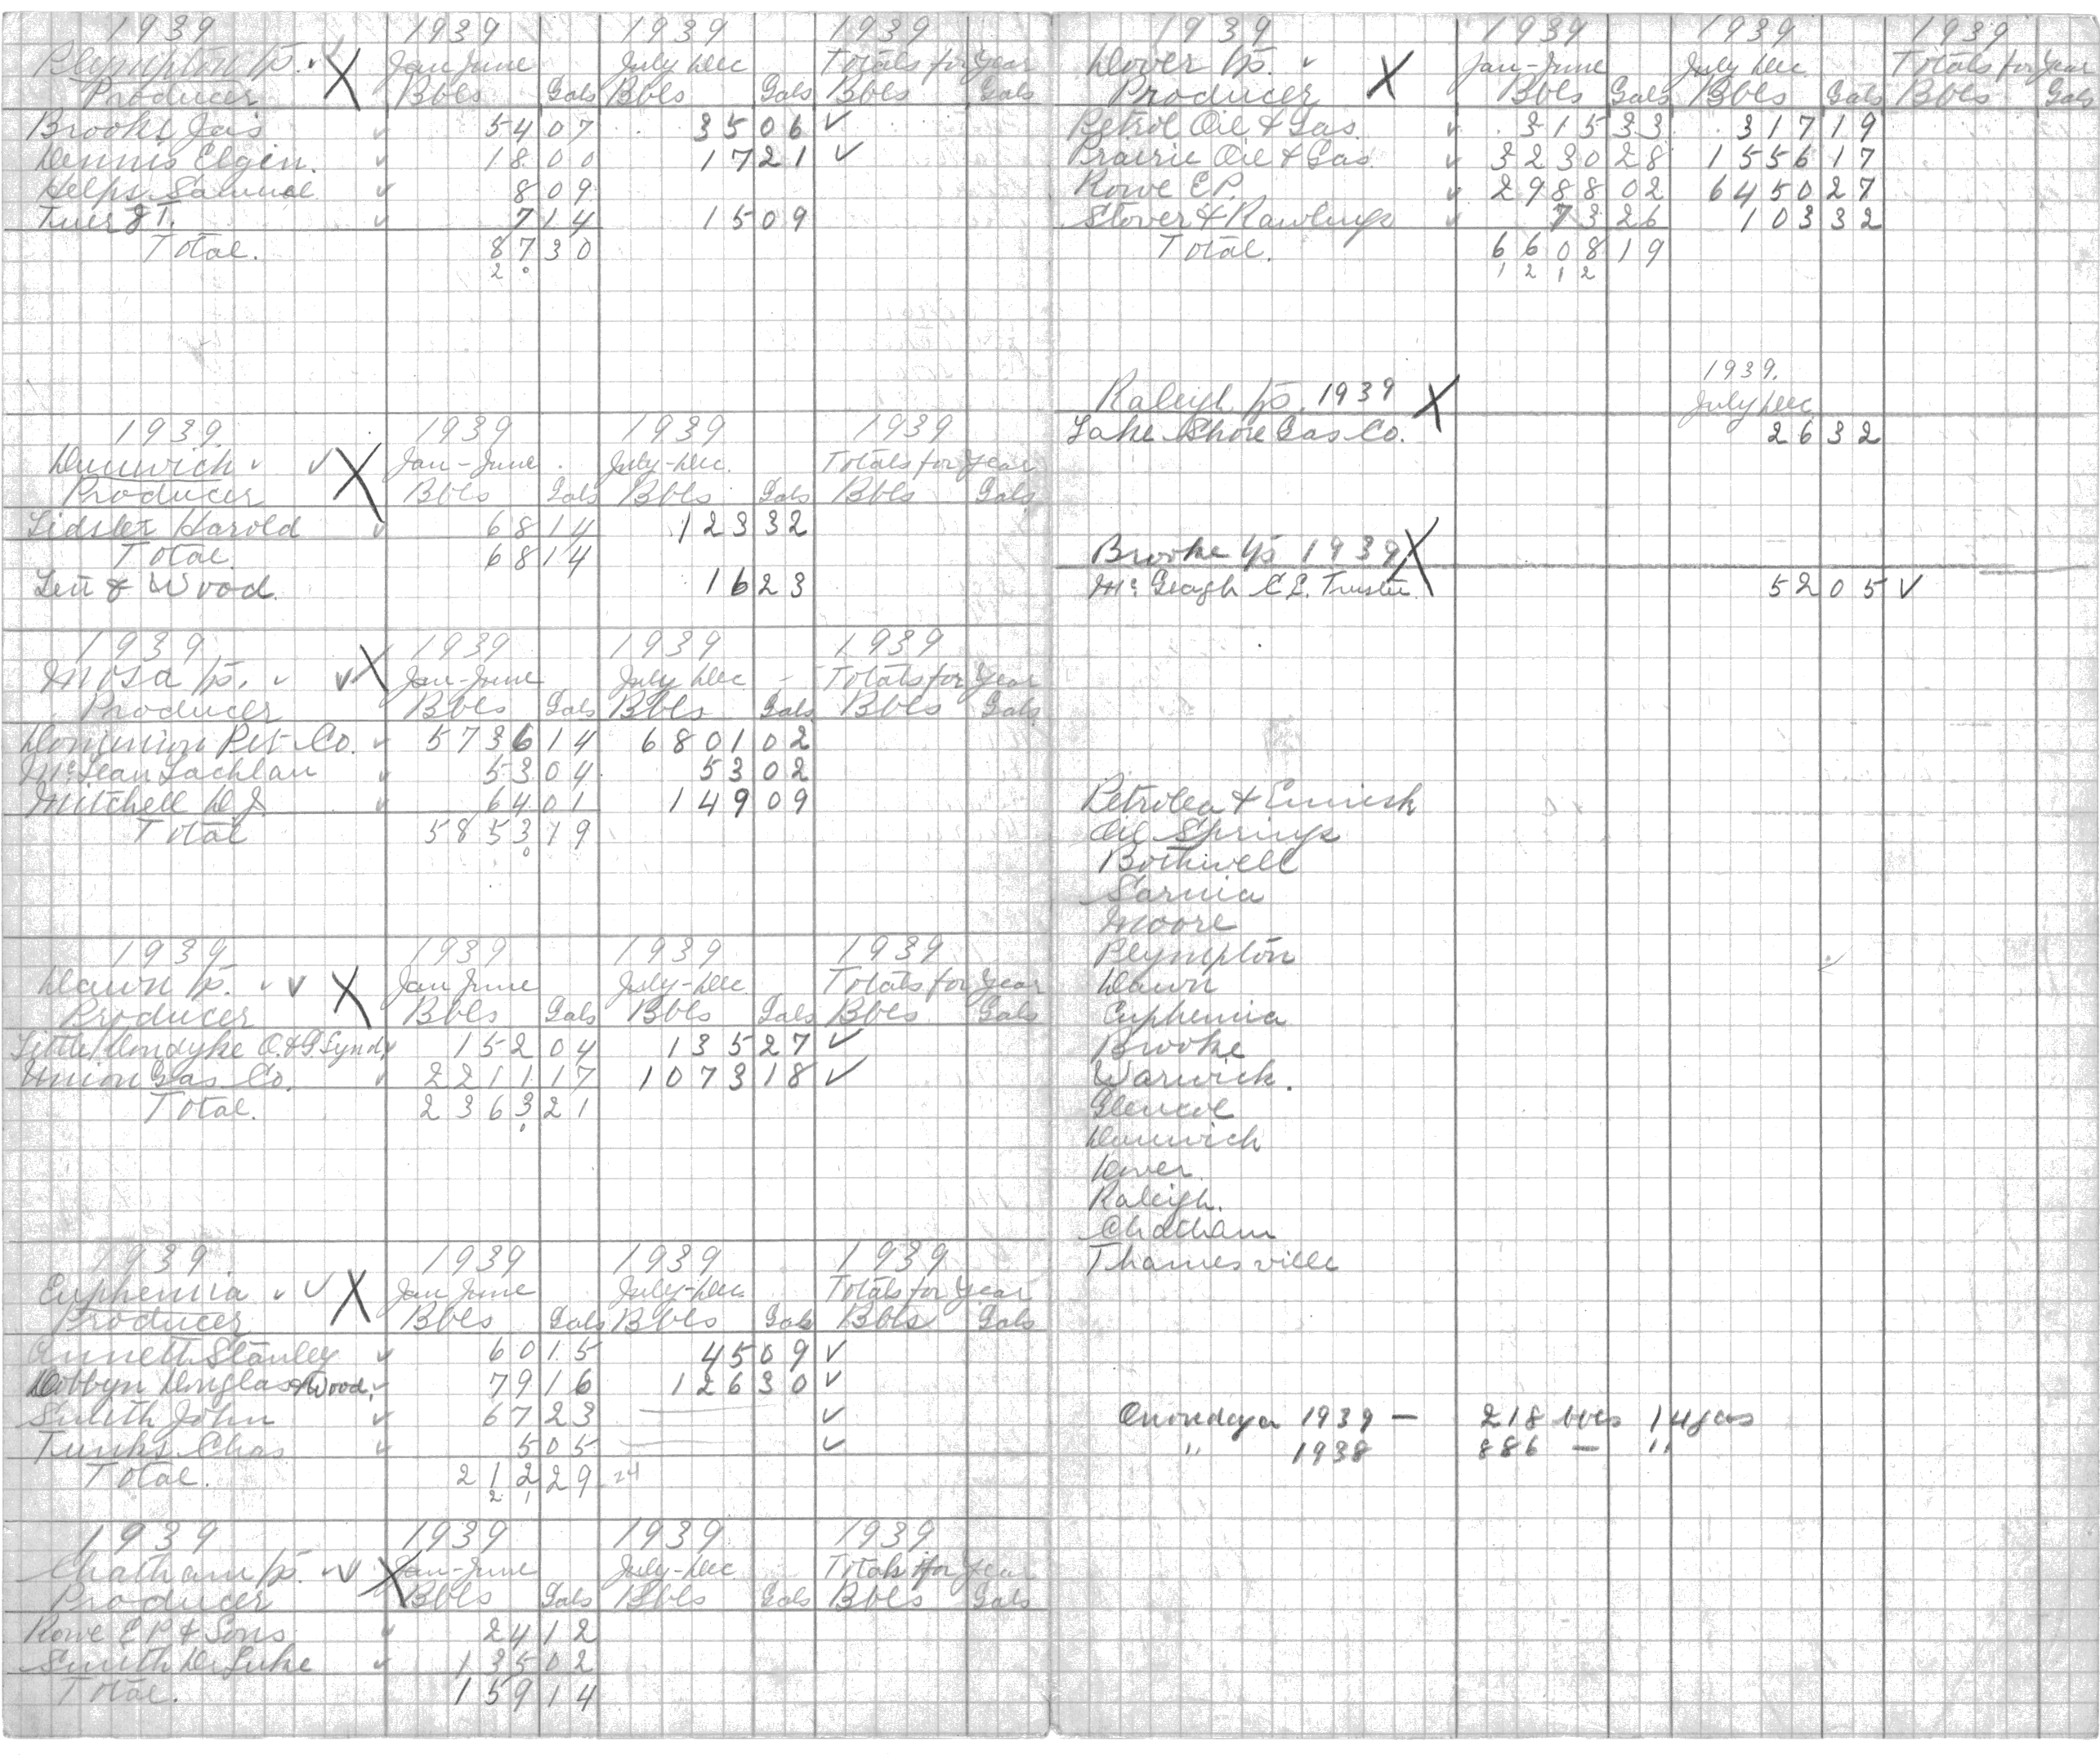 1939 1939 1939 1939
Plympton tp. Jan June July Dec Totals for Year
Producer Bbls Gals Bbls Gals Bbls Gals
Brooks, Jas ✓ 54 07 35 06 ✓
Dennis Elgin. ✓ 18 00 17 21 ✓
Helps Samuel ✓ 8 09
✓ 7 14 15 09
Total. 87 30
2 0
1939. 1939 1939 1939
Dunwich ✓ ✓ X Jan-June. July-Dec. Totals for Year
Producer Bbls Gals Bbls Gals Bbls Gals
Lidster Harold ✓ 68 14 123 32
Total. 68 14
& Wood. 16 23
1939. 1939 1939 1939
Mosa tp. ✓ ✓ X Jan-June July Dec - Totals for Year
Producer Bbls Gals Bbls Gals Bbls Gals
Dominion Pet Co. ✓ 5736 14 6801 02
McLean Lachlan ✓ 53 04 53 02
Mitchell D J. ✓ 64 01 149 09
Total 5853 19
0
1939. 1939 1939 1939
Dawn tp. ✓ ✓ X Jan June July-Dec. Totals for Year
Producer Bbls Gals Bbls Gals Bbls Gals
Little Klondyke O.&G Synd ✓ 152 04 135 27 ✓
Union Gas Co. ✓ 2211 17 1073 18 ✓
Total. 2363 21
0
1939. 1939 1939 1939
Euphemia ✓ ✓ X Jan June July-Dec Totals for Year
Producer Bbls Gals Bbls Gals Bbls Gals
Annett Stanley ✓ 60 15 45 09 ✓
Dobbyn Douglas & Wood. ✓ 79 16 126 30 ✓
Smith John ✓ 67 23 — ✓
Tunks Chas. ✓ 5 05 — ✓
Total. 212 29 24
2 1
1939 1939 1939 1939
Chatham tp. ✓ ✓ X Jan-June July-Dec Totals for Year
Producer Bbls Gals Bbls Gals Bbls Gals
Rowe E P & Sons ✓ 24 12
Smith Luke ✓ 135 02
Total. 159 14
1939 1939 1939 1939
Dover tp. ✓ X Jan-June July Dec Totals for Year
Producer Bbls Gals Bbls Gals Bbls Gals
Petrol Oil & Gas. ✓ 315 33 317 19
Prairie Oil & Gas. ✓ 3230 28 1556 17
Rowe E.P. ✓ 2988 02 6450 27
Stover & Rawlings ✓ 73 26 103 32
Total. 6608 19
1 2 1 2
1939.
Raleigh tp. 1939 X July Dec
Lake Shore Gas Co. 26 32
Brooke tp 1939 X
McGeagh C E. Trustee. 52 05 ✓
Petrolea & Ennisk
Oil Springs
Bothwell
Sarnia
Moore
Plympton
Dawn
Euphemia
Brooke
Warwick.
Glencoe
Dunwich
Dover.
Raleigh.
Chatham
Thamesville
Onondaga 1939 - 218 bbls 14 gas
" 1938 886 - "